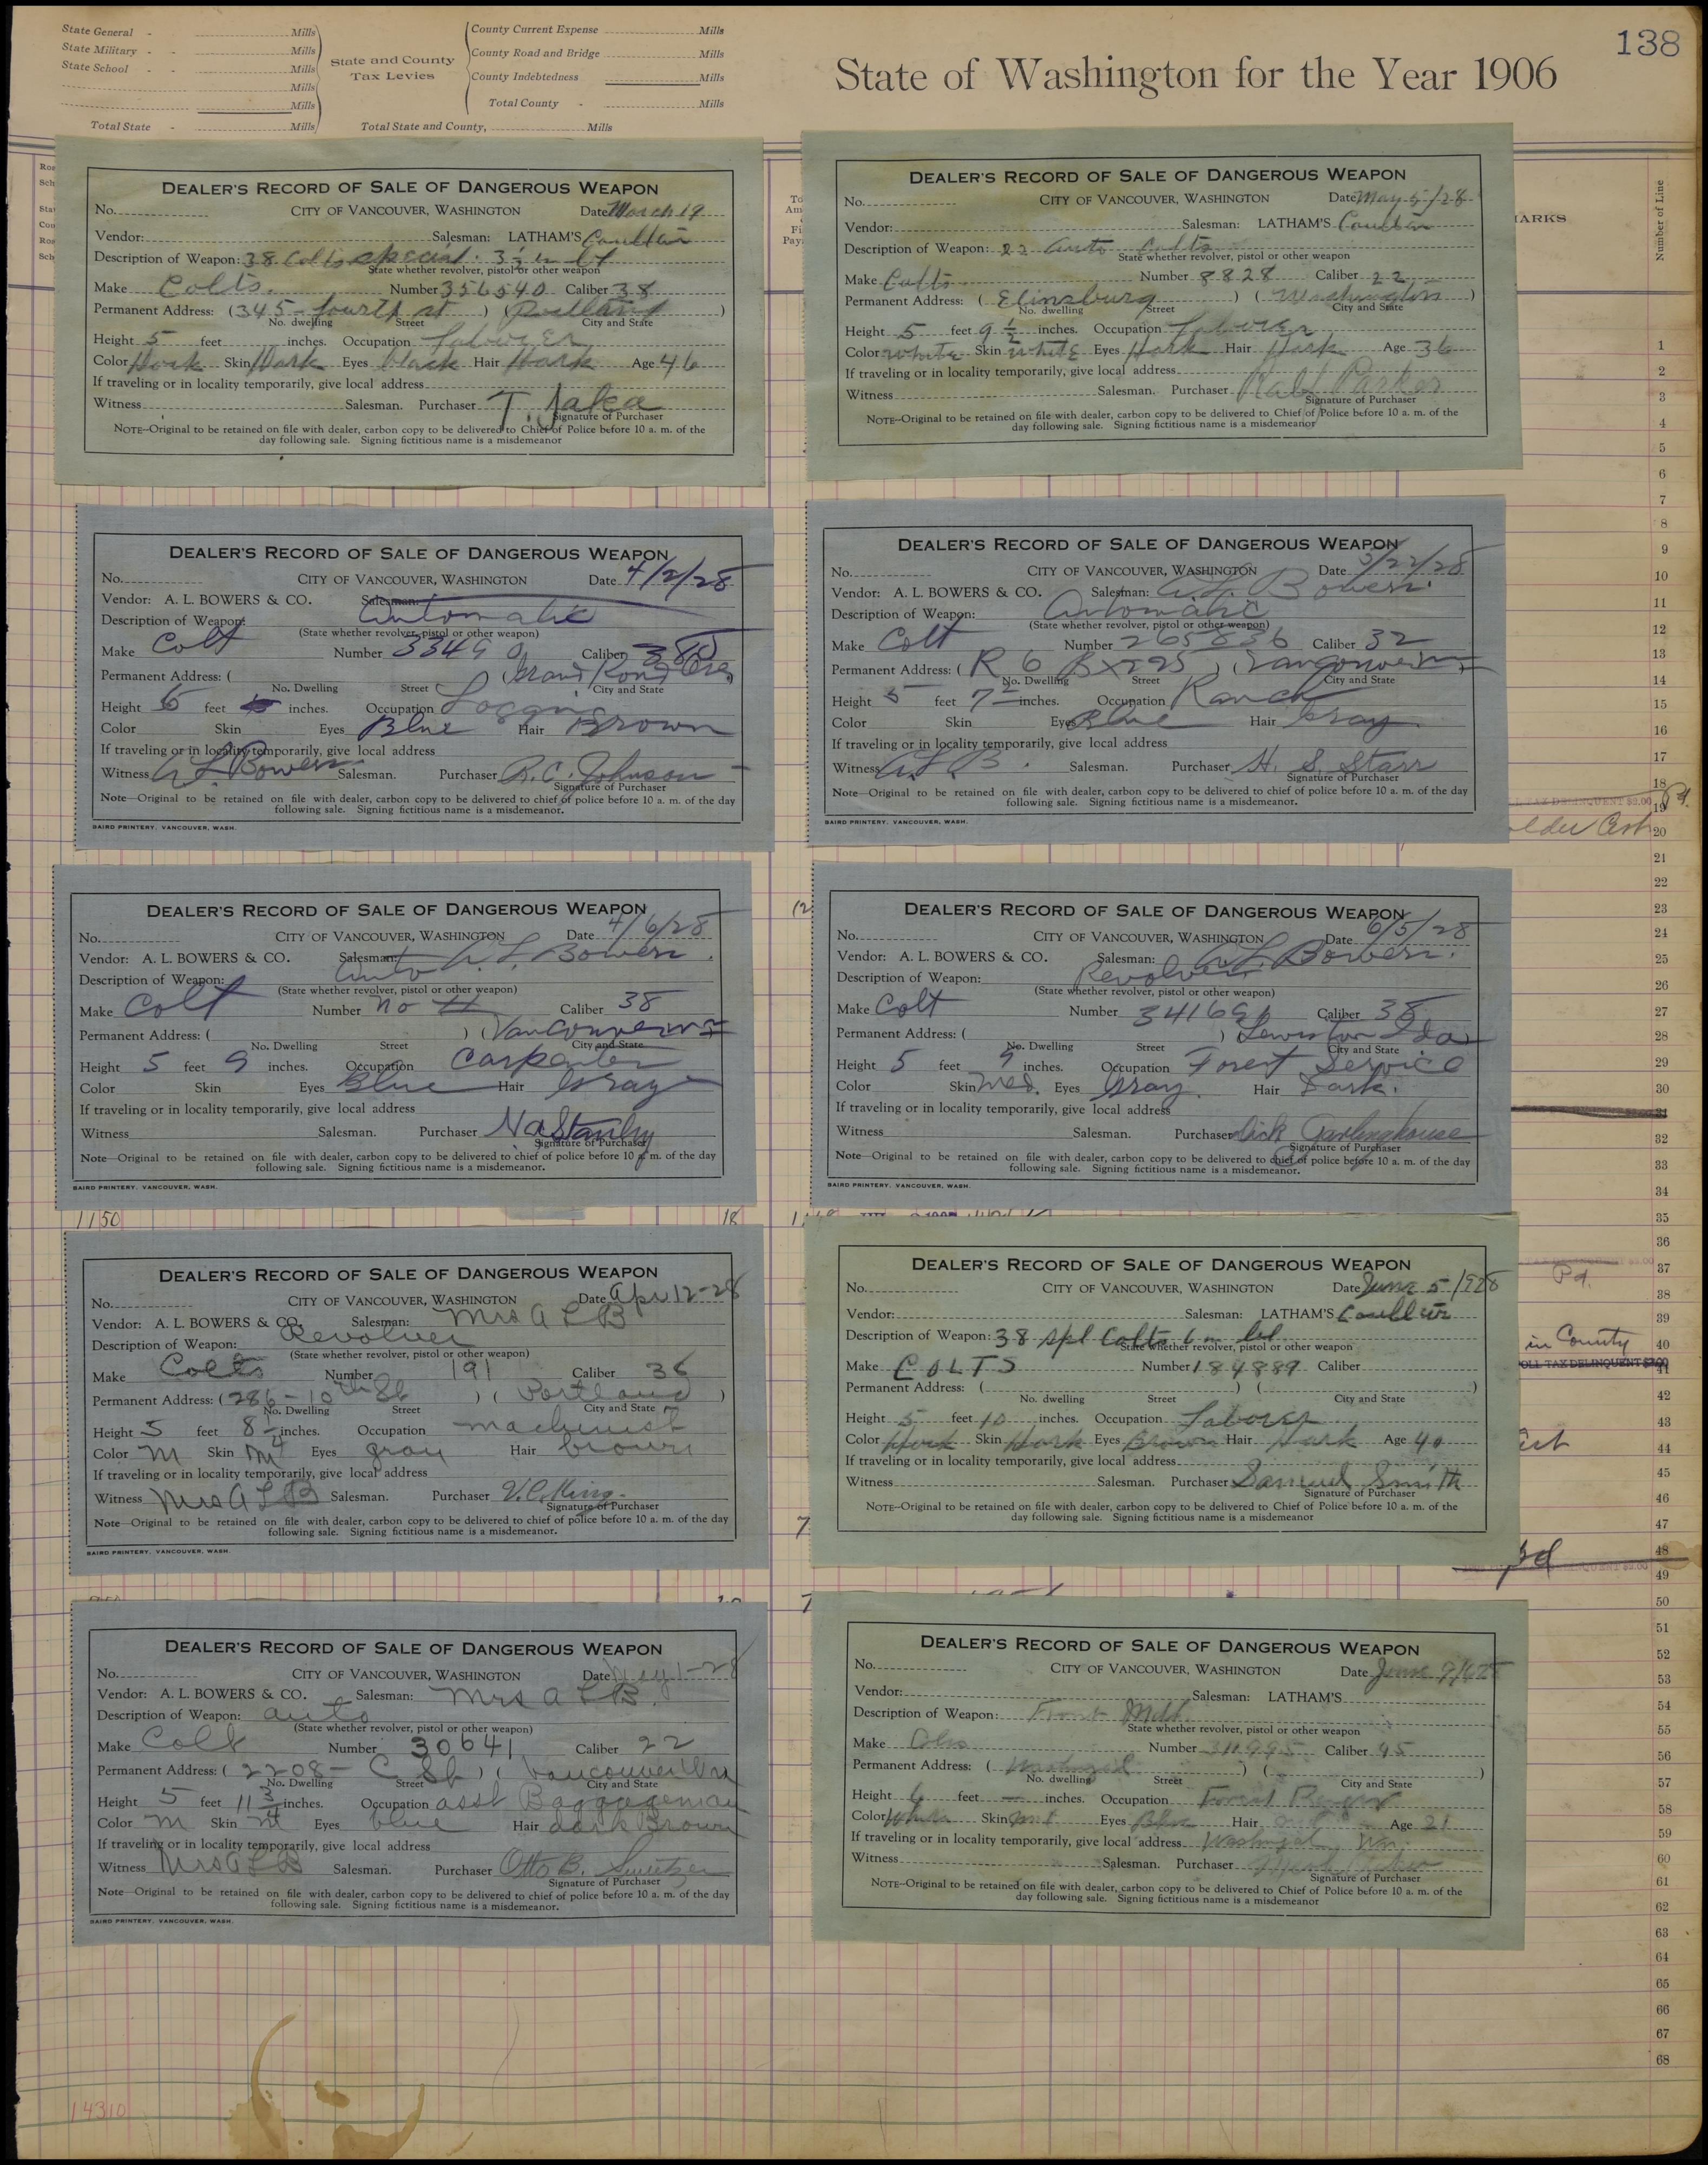 138
State General - Mills
State Military - - Mills
State School - - Mills
Mills
Mills
Total State - Mills
State and County
Tax Levies
County Current Expense Mills
County Road and Bridge Mills
County Indebtedness Mills
Total County - Mills
Total State and County, Mills
State of Washington for the Year 1906
Number of Line
DEALER'S RECORD OF SALE OF DANGEROUS WEAPON
No. CITY OF VANCOUVER, WASHINGTON Date March 19
Vendor: Salesman: LATHAM'S
Description of Weapon: 38 Colts special. 3½ in
State whether revolver, pistol or other weapon
Make Colts. Number 356540 Caliber 38
Permanent Address: (345 - fourth st ) (Portland )
No. dwelling Street City and State
Height 5 feet inches. Occupation Laborer
Color Dark Skin Dark Eyes black Hair Dark Age 46
If traveling or in locality temporarily, give local address
Witness Salesman. Purchaser T. Jaka
Signature of Purchaser
NOTE--Original to be retained on file with dealer, carbon copy to be delivered to Chief of Police before 10 a. m. of the
day following sale. Signing fictitious name is a misdemeanor
DEALER'S RECORD OF SALE OF DANGEROUS WEAPON
No. CITY OF VANCOUVER, WASHINGTON Date May 5/28
Vendor: Salesman: LATHAM'S
Description of Weapon: 22 Auto Colts
State whether revolver, pistol or other weapon
Make Colts Number 8828 Caliber 22
Permanent Address: ( Elinsburg ) ( Washington )
No. dwelling Street City and State
Height 5 feet 9½ inches. Occupation Laborer
Color White Skin White Eyes Dark Hair Dark Age 36
If traveling or in locality temporarily, give local address
Witness Salesman. Purchaser Parker
Signature of Purchaser
NOTE--Original to be retained on file with dealer, carbon copy to be delivered to Chief of Police before 10 a. m. of the
day following sale. Signing fictitious name is a misdemeanor
DEALER'S RECORD OF SALE OF DANGEROUS WEAPON
No. CITY OF VANCOUVER, WASHINGTON Date 4/2/28
Vendor: A. L. BOWERS & CO. Salesman:
Description of Weapon: Automatic
(State whether revolver, pistol or other weapon)
Make Colt Number 33490 Caliber 380
Permanent Address: ( Grand Rond Ore
No. Dwelling Street City and State
Height 6 feet inches. Occupation Logging
Color Skin Eyes Blue Hair Brown
If traveling or in locality temporarily, give local address
Witness A L Bowers Salesman. Purchaser R. C. Johnson
Signature of Purchaser
Note—Original to be retained on file with dealer, carbon copy to be delivered to chief of police before 10 a. m. of the day
following sale. Signing fictitious name is a misdemeanor.
BAIRD PRINTERY, VANCOUVER, WASH.
DEALER'S RECORD OF SALE OF DANGEROUS WEAPON
No. CITY OF VANCOUVER, WASHINGTON Date 3/22/28
Vendor: A. L. BOWERS & CO. Salesman: A. L. Bowers.
Description of Weapon: Automatic
(State whether revolver, pistol or other weapon)
Make Colt Number 265836 Caliber 32
Permanent Address: ( R 6 Bx 295 ) (Vancouver Wn
No. Dwelling Street City and State
Height 5 feet 7½ inches. Occupation Ranch
Color Skin Eyes Blue Hair Gray
If traveling or in locality temporarily, give local address
Witness A. L. B. Salesman. Purchaser H. S. Starr
Signature of Purchaser
Note—Original to be retained on file with dealer, carbon copy to be delivered to chief of police before 10 a. m. of the day
following sale. Signing fictitious name is a misdemeanor.
BAIRD PRINTERY, VANCOUVER, WASH.
DEALER'S RECORD OF SALE OF DANGEROUS WEAPON
No. CITY OF VANCOUVER, WASHINGTON Date 4/6/28
Vendor: A. L. BOWERS & CO. Salesman: A. L. Bowers.
Description of Weapon: Auto
(State whether revolver, pistol or other weapon)
Make Colt Number no # Caliber 38
Permanent Address: ( ) (Vancouver Wn
No. Dwelling Street City and State
Height 5 feet 9 inches. Occupation Carpenter
Color Skin Eyes Blue Hair Gray
If traveling or in locality temporarily, give local address
Witness Salesman. Purchaser N a Stanley
Signature of Purchaser
Note—Original to be retained on file with dealer, carbon copy to be delivered to chief of police before 10 a. m. of the day
following sale. Signing fictitious name is a misdemeanor.
BAIRD PRINTERY, VANCOUVER, WASH.
DEALER'S RECORD OF SALE OF DANGEROUS WEAPON
No. CITY OF VANCOUVER, WASHINGTON Date 6/5/28
Vendor: A. L. BOWERS & CO. Salesman: A L Bowers.
Description of Weapon: Revolver
(State whether revolver, pistol or other weapon)
Make Colt Number 341691 Caliber 38
Permanent Address: ( ) Lewiston Ida
No. Dwelling Street City and State
Height 5 feet 9 inches. Occupation Forest Service
Color Skin Med. Eyes Gray. Hair Dark.
If traveling or in locality temporarily, give local address
Witness Salesman. Purchaser Dick Garlinghouse
Signature of Purchaser
Note—Original to be retained on file with dealer, carbon copy to be delivered to chief of police before 10 a. m. of the day
following sale. Signing fictitious name is a misdemeanor.
BAIRD PRINTERY, VANCOUVER, WASH.
1150 18
DEALER'S RECORD OF SALE OF DANGEROUS WEAPON
No. CITY OF VANCOUVER, WASHINGTON Date Apr 12-28
Vendor: A. L. BOWERS & CO. Salesman: Mrs A L B
Description of Weapon: Revolver
(State whether revolver, pistol or other weapon)
Make Colts Number 191 Caliber 36
Permanent Address: (286 - 10th St ) ( Portland )
No. Dwelling Street City and State
Height 5 feet 8¼ inches. Occupation machinist
Color M Skin M Eyes gray Hair brown
If traveling or in locality temporarily, give local address
Witness Mrs A L B Salesman. Purchaser V. C. King.
Signature of Purchaser
Note—Original to be retained on file with dealer, carbon copy to be delivered to chief of police before 10 a. m. of the day
following sale. Signing fictitious name is a misdemeanor.
BAIRD PRINTERY, VANCOUVER, WASH.
DEALER'S RECORD OF SALE OF DANGEROUS WEAPON
No. CITY OF VANCOUVER, WASHINGTON Date June 5/1928
Vendor: Salesman: LATHAM'S
Description of Weapon: 38 spl Colts 6 in bbl
State whether revolver, pistol or other weapon
Make COLTS Number 184889 Caliber
Permanent Address: ( ) ( )
No. dwelling Street City and State
Height 5 feet 10 inches. Occupation Laborer
Color Dark Skin Dark Eyes Brown Hair Dark Age 40
If traveling or in locality temporarily, give local address
Witness Salesman. Purchaser Samuel Smith
Signature of Purchaser
NOTE--Original to be retained on file with dealer, carbon copy to be delivered to Chief of Police before 10 a. m. of the
day following sale. Signing fictitious name is a misdemeanor
DEALER'S RECORD OF SALE OF DANGEROUS WEAPON
No. CITY OF VANCOUVER, WASHINGTON Date May 1-28
Vendor: A. L. BOWERS & CO. Salesman: Mrs A L B.
Description of Weapon: auto
(State whether revolver, pistol or other weapon)
Make Colt Number 30641 Caliber 22
Permanent Address: ( 2208 - C St ) ( Vancouver Wn
No. Dwelling Street City and State
Height 5 feet 11¾ inches. Occupation asst Baggageman
Color M Skin M Eyes blue Hair dark Brown
If traveling or in locality temporarily, give local address
Witness Mrs A L B Salesman. Purchaser Otto B.
Signature of Purchaser
Note—Original to be retained on file with dealer, carbon copy to be delivered to chief of police before 10 a. m. of the day
following sale. Signing fictitious name is a misdemeanor.
BAIRD PRINTERY, VANCOUVER, WASH.
DEALER'S RECORD OF SALE OF DANGEROUS WEAPON
No. CITY OF VANCOUVER, WASHINGTON Date June
Vendor: Salesman: LATHAM'S
Description of Weapon:
State whether revolver, pistol or other weapon
Make Number 311995 Caliber 45
Permanent Address: ( Washougal ) ( )
No. dwelling Street City and State
Height 6 feet — inches. Occupation Forest Ranger
Color White Skin Eyes Blue Hair Age 21
If traveling or in locality temporarily, give local address Washougal Wn.
Witness Salesman. Purchaser
Signature of Purchaser
NOTE--Original to be retained on file with dealer, carbon copy to be delivered to Chief of Police before 10 a. m. of the
day following sale. Signing fictitious name is a misdemeanor
1
2
3
4
5
6
7
8
9
10
11
12
13
14
15
16
17
18
19
20
21
22
23
24
25
26
27
28
29
30
31
32
33
34
35
36
37
38
39
in County 40
41
42
43
44
45
46
47
48
49
50
51
52
53
54
55
56
57
58
59
60
61
62
63
64
65
66
67
68
14310